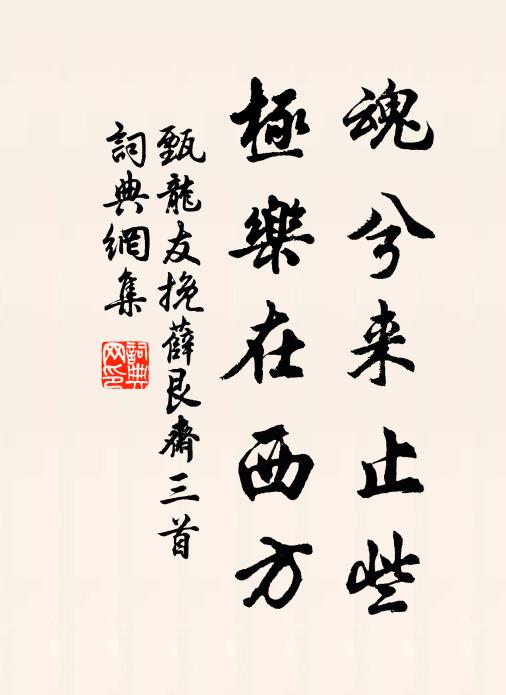 魂兮来止些
極樂在西方
甄龍友挽薛艮齋三首
詞典網集
詞典網印